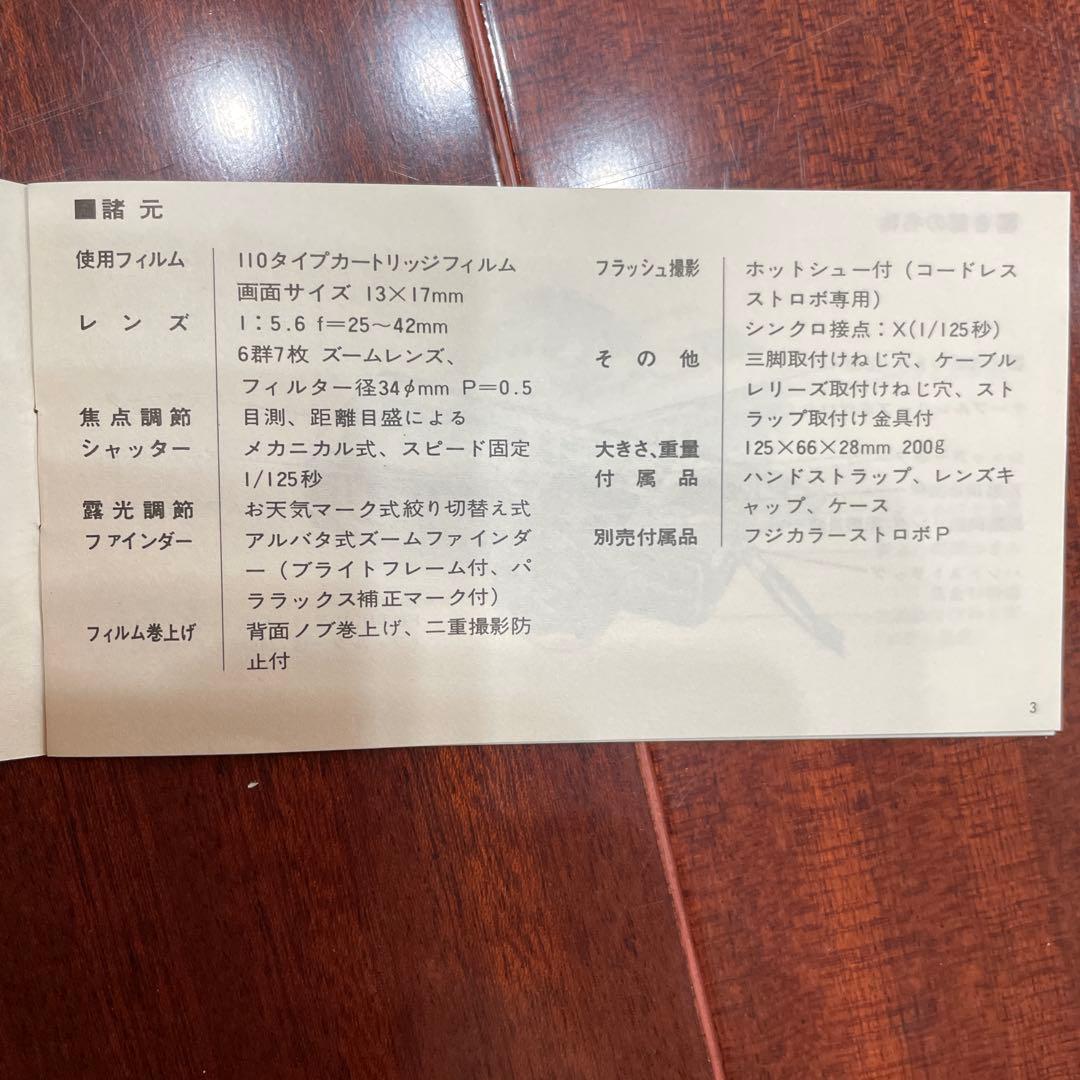 ■諸元
使用フィルム 110タイプカートリッジフィルム
画面サイズ 13×17mm
レンズ 1:5.6 f=25～42mm
6群7枚 ズームレンズ、
フィルター径34φmm P=0.5
焦点調節 目測、距離目盛による
シャッター メカニカル式、スピード固定
1/125秒
露光調節 お天気マーク式絞り切替え式
ファインダー アルバタ式ズームファインダ
ー（ブライトフレーム付、パ
ララックス補正マーク付）
フィルム巻上げ 背面ノブ巻上げ、二重撮影防
止付
フラッシュ撮影 ホットシュー付（コードレス
ストロボ専用）
シンクロ接点：X(1/125秒)
その他 三脚取付けねじ穴、ケーブル
レリーズ取付けねじ穴、スト
ラップ取付け金具付
大きさ、重量 125×66×28mm 200g
付属品 ハンドストラップ、レンズキ
ャップ、ケース
別売付属品 フジカラーストロボP
3